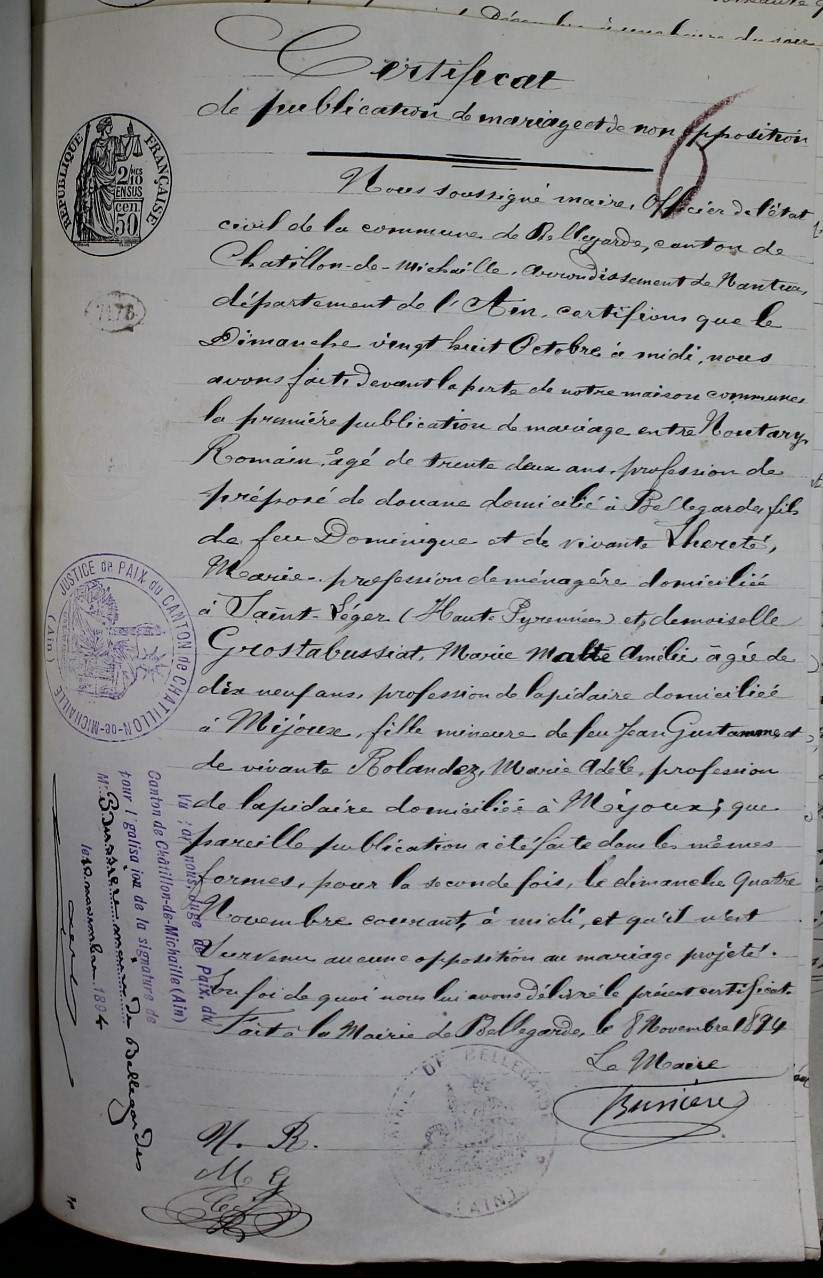 Certificat
de publication de mariage et de non opposition
RÉPUBLIQUE FRANÇAISE
2/10 EN SUS
50 cen
6
Nous soussigné maire, Officier de l'état
civil de la commune de Bellegarde, canton de
Chatillon-de-Michaille, arrondissement de Nantua,
département de l'Ain, certifions que le
Dimanche vingt huit Octobre à midi, nous
avons fait, devant la porte de notre maison commune
la première publication de mariage entre Noutary,
Romain, âgé de trente deux ans, profession de
préposé de douane domicilié à Bellegarde, fils
de feu Dominique et de vivante Lhereté,
Marie, profession de ménagère domiciliée
à Saint-Léger (Haute Pyrennées) et demoiselle
Grostabussiat, Marie Malte Amélie âgée de
dix neuf ans, profession de lapidaire domiciliée
à Mijoux, fille mineure de feu Jean et
de vivante Rolandez, Marie Adèle, profession
de lapidaire domiciliée à Mijoux; que
pareille publication a été faite dans les mêmes
formes, pour la seconde fois, le dimanche quatre
Novembre courant, à midi, et qu'il n'est
survenu aucune opposition au mariage projeté.
En foi de quoi nous lui avons délivré le présent certificat.
Fait à la Mairie de Bellegarde, le 8 Novembre 1894
Le Maire
Bussière
MAIRIE DE BELLEGARDE
(AIN)
N. R.
M G
JUSTICE de PAIX du CANTON de CHATILLON-de-MICHAILLE
(Ain)
Vu par nous, Juge de Paix, du
Canton de Châtillon-de-Michaille (Ain)
pour légalisation de la signature de
M. Bussière maire de Bellegarde
le 10 novembre 1894